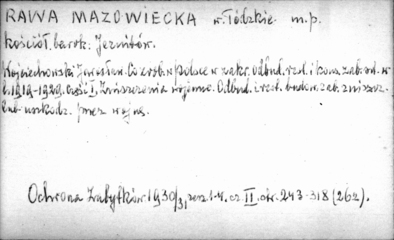 RAWA MAZOWIECKA w. Łódzkie m.p.
kościół barok. Jezuitów.
Wojciechowski Jarosław. Co zrob. w Polsce w zakr. odbud. rest. i kons. zab. od. w
l. 1919-1929. część I. Zniszczenia wojenne. Odbud. i rest. budow. zab. zniszcz.
lub uszkodz. przez wojnę.
Ochrona Zabytków 1930/31, zesz. 1-4. cz. II. str. 243-318 (262).